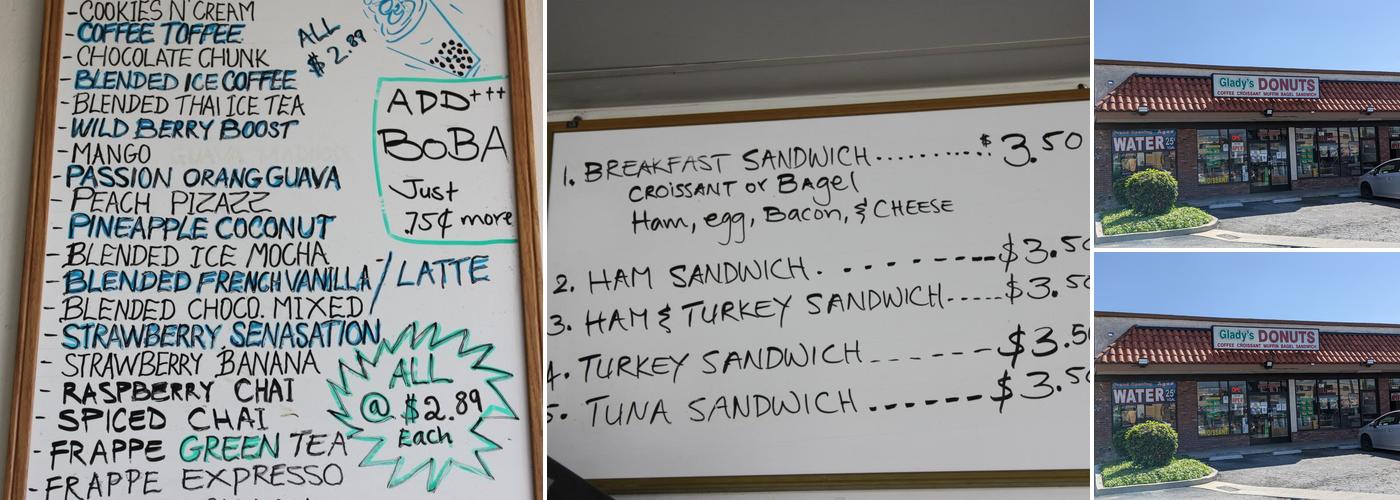 -COOKIES N' CREAM
-COFFEE TOFFEE
-CHOCOLATE CHUNK
-BLENDED ICE COFFEE
-BLENDED THAI ICE TEA
-WILD BERRY BOOST
-MANGO
-PASSION ORANG GUAVA
-PEACH PIZAZZ
-PINEAPPLE COCONUT
-BLENDED ICE MOCHA
-BLENDED FRENCH VANILLA / LATTE
-BLENDED CHOCO. MIXED
-STRAWBERRY SENASATION
-STRAWBERRY BANANA
-RASPBERRY CHAI
-SPICED CHAI
-FRAPPE GREEN TEA
-FRAPPE EXPRESSO
ALL
$2.89
ADD+++
BOBA
Just
.75¢ more
ALL
@ $2.89
Each
1. BREAKFAST SANDWICH..........$3.50
CROISSANT or Bagel
Ham, egg, Bacon, & CHEESE
2. HAM SANDWICH. - - - - - - --$3.50
3. HAM & TURKEY SANDWICH-----$3.50
4. TURKEY SANDWICH------$3.50
5. TUNA SANDWICH------$3.50
Glady's DONUTS
COFFEE CROISSANT MUFFIN BAGEL SANDWICH
WATER 25¢
Glady's DONUTS
COFFEE CROISSANT MUFFIN BAGEL SANDWICH
WATER 25¢